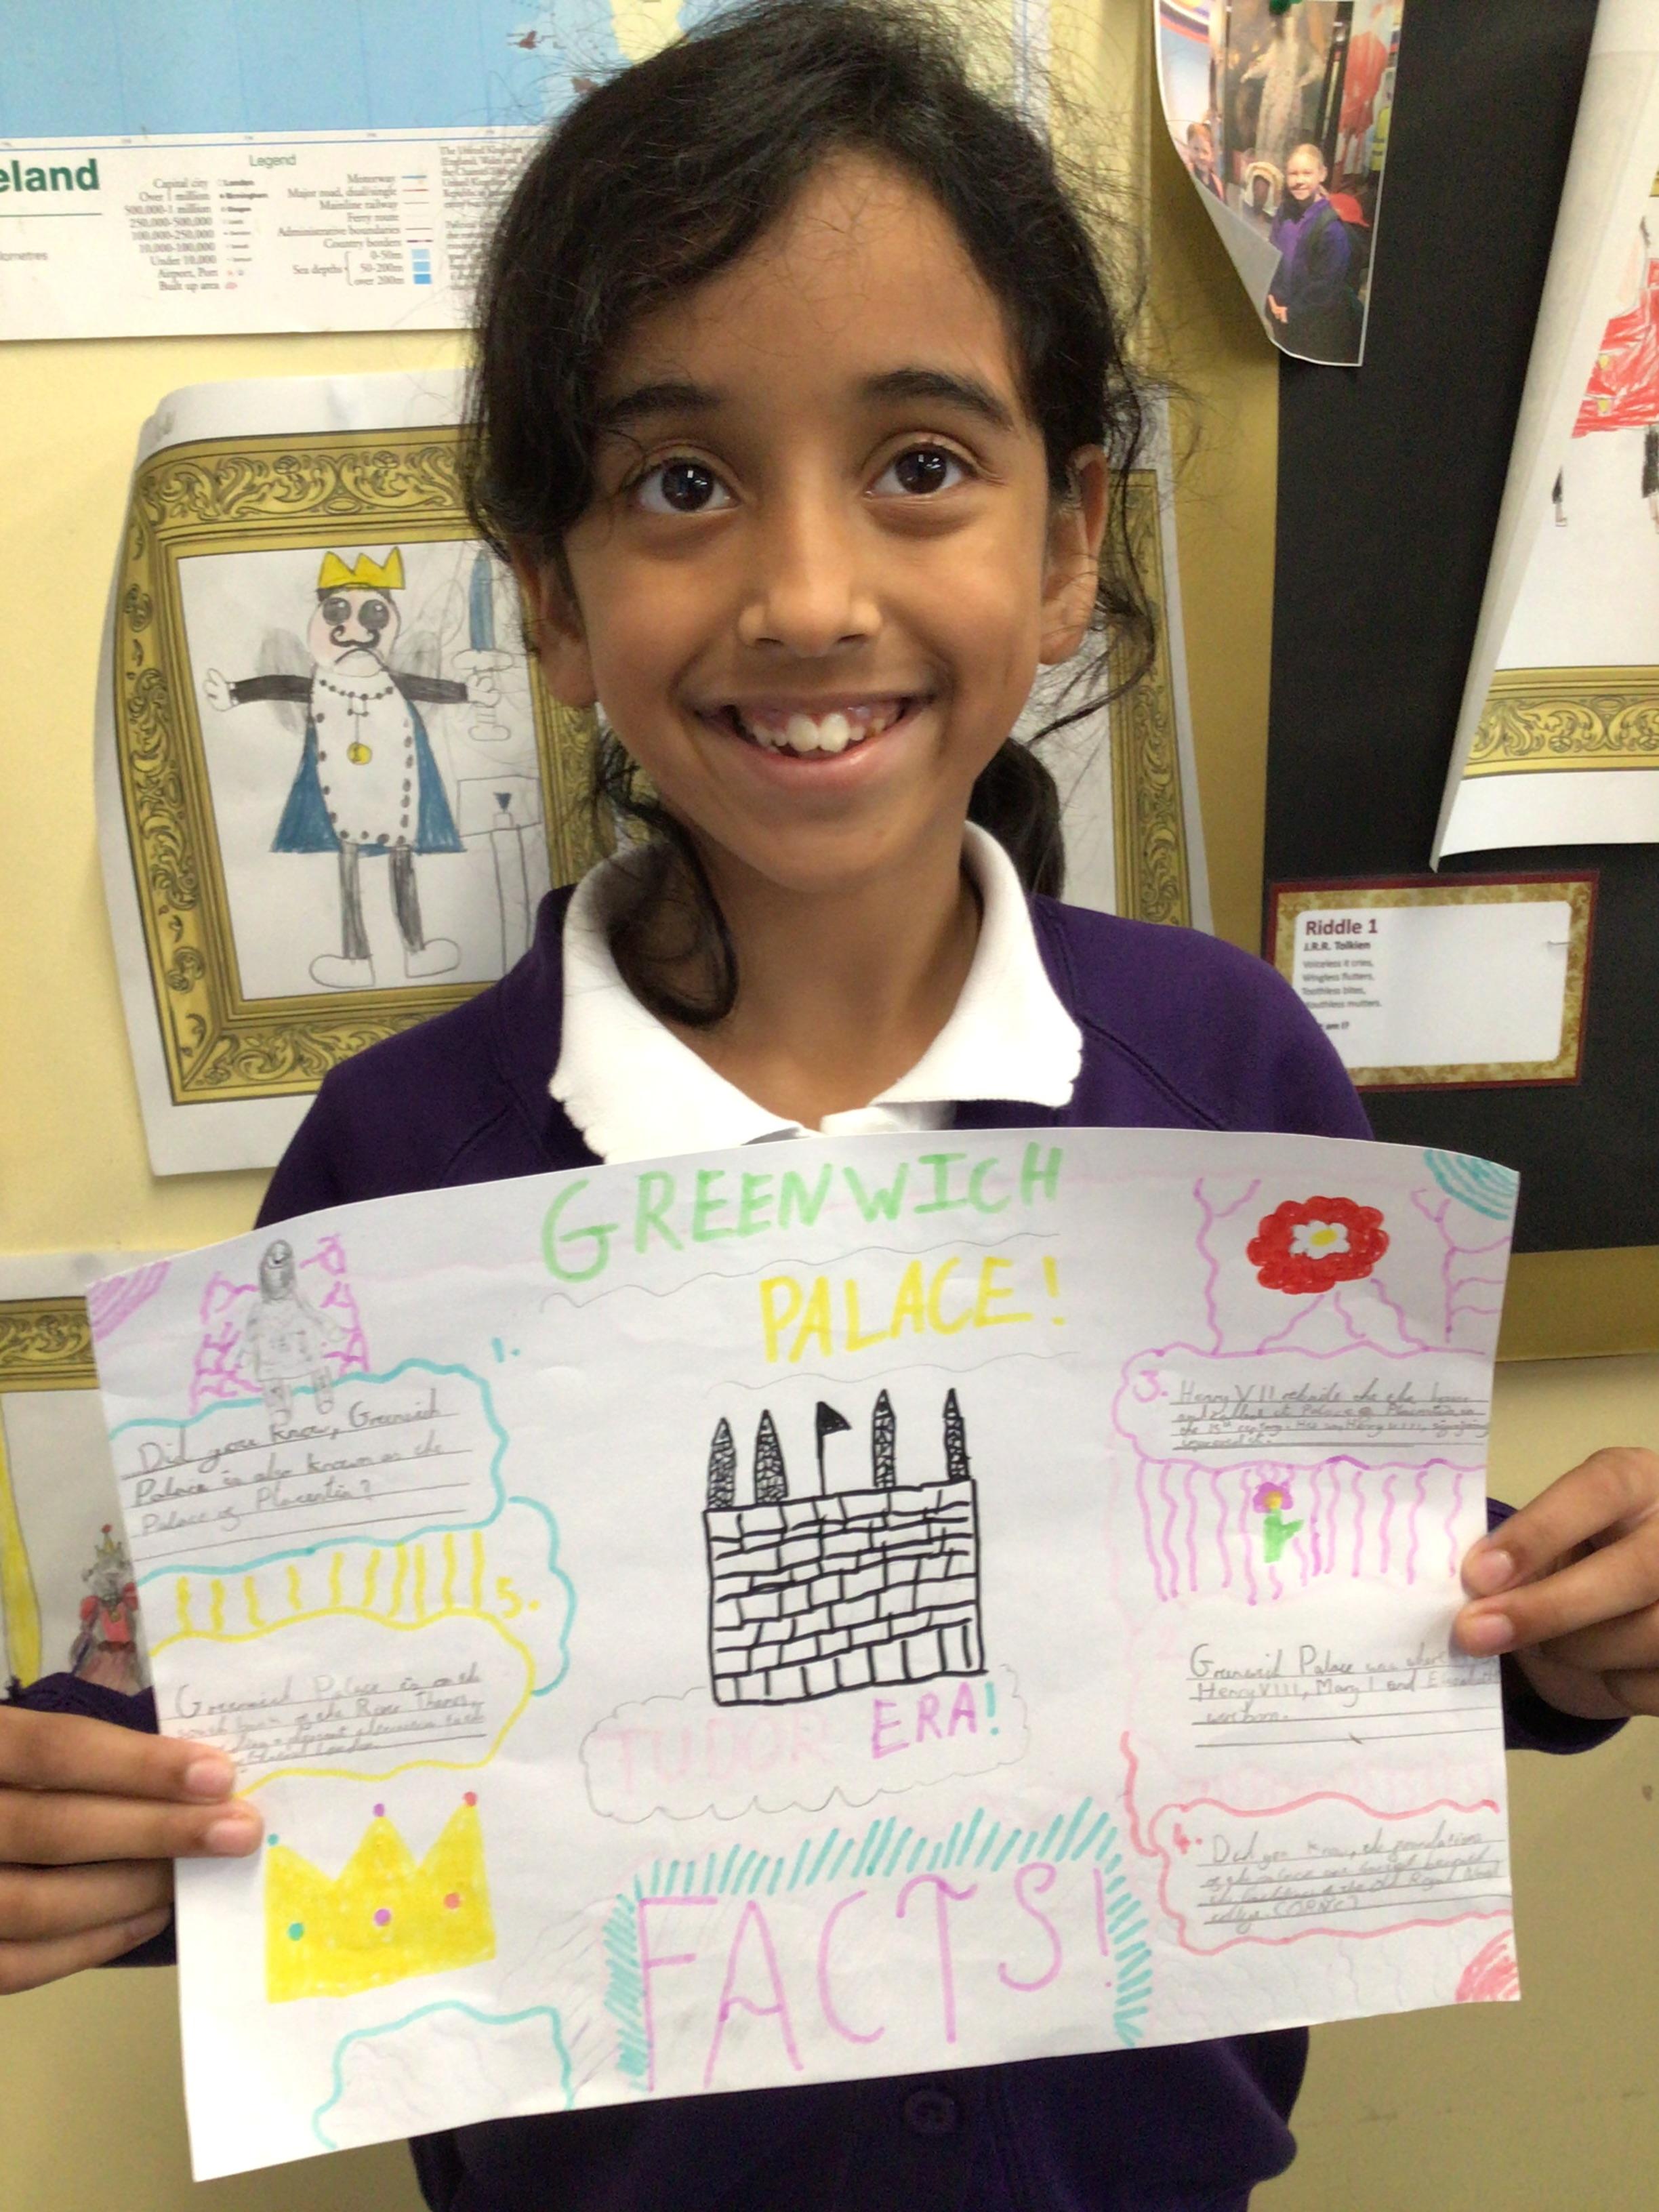 eland
Legend
Capital city
London
Over 1 million
Birmingham
500,000-1 million
Glasgow
250,000-500,000
100,000-250,000
10,000-100,000
Under 10,000
Airport, Port
Built up area
Motorway
Major road, dual/single
Mainline railway
Ferry route
Administrative boundaries
Country borders
Sea depths
0-50m
50-200m
over 200m
lometres
Riddle 1
J.R.R. Tolkien
Voiceless it cries,
Wingless flutters,
Toothless bites,
outhless mutters.
am I?
GREENWICH
PALACE!
1.
Did you know, Greenwich
Palace is also known as the
Palace of Placentia?
5.
Greenwich Palace is on the
south bank of the River Thames,
Central London.
TUDOR ERA!
FACTS!
3. Henry VII rebuilt the
Palace Placentia in
the 15th century. Henry VIII, enjoying
2.
Greenwich Palace was where
Henry VIII, Mary I and Elizabeth
were born.
4. Did you know, the foundations
of the palace are buried beneath
the buildings of the Old Royal Naval
college. (ORNC)